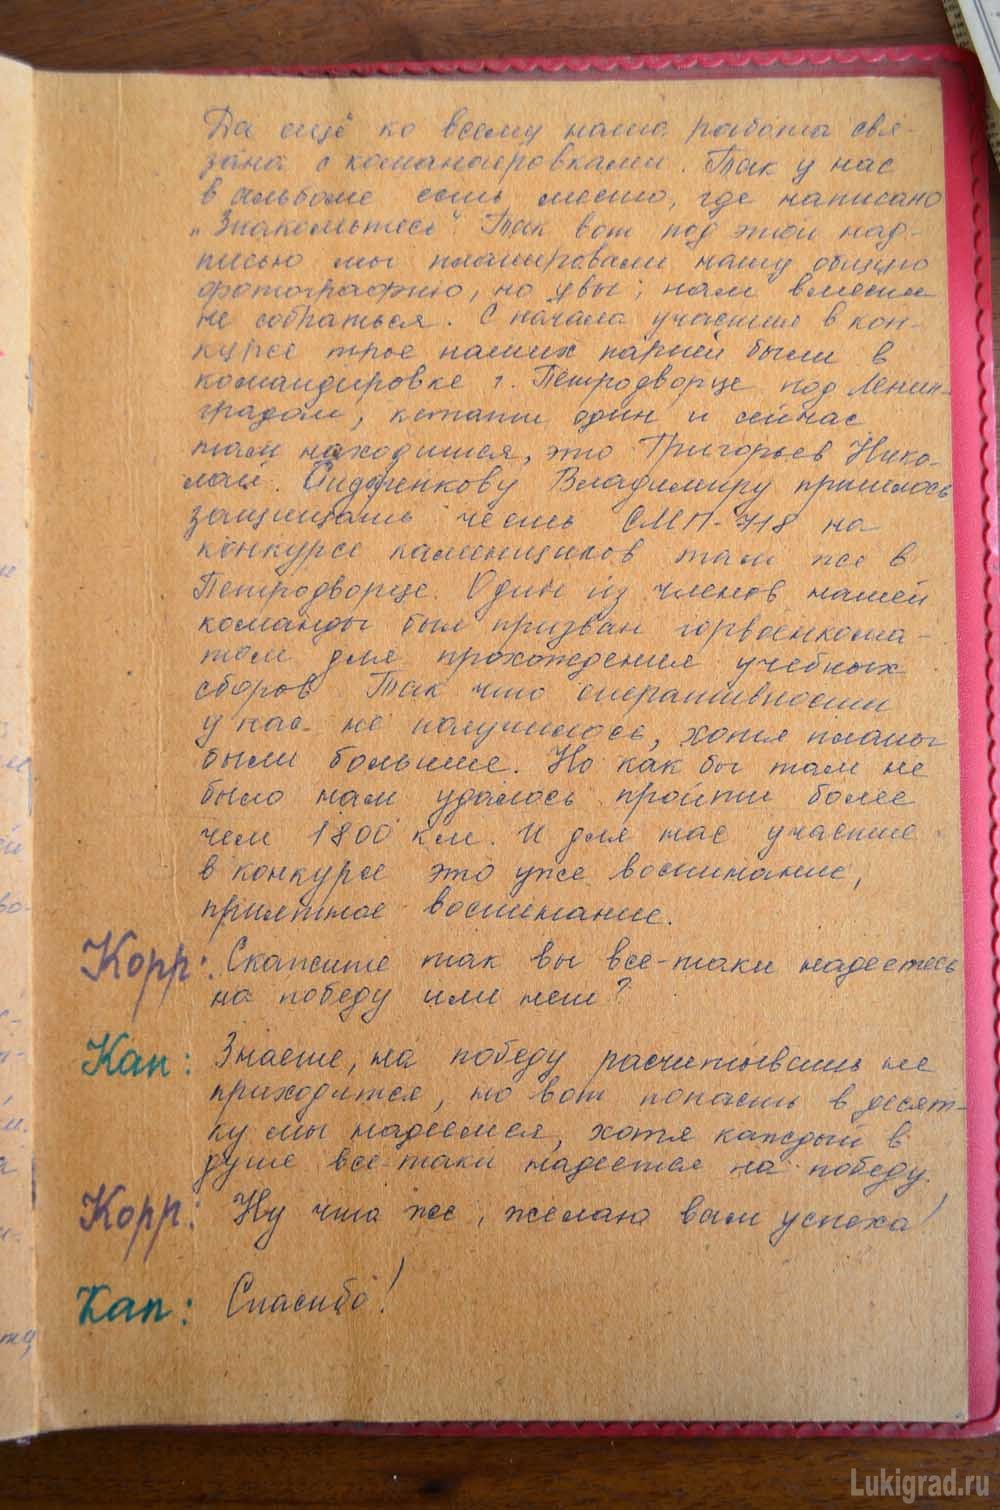 Да ещё ко всему наша работа свя-
зана с командировками. Так у нас
в альбоме есть место, где написано
„Знакомьтесь". Так вот под этой над-
писью мы планировали нашу общую
фотографию, но увы, нам вместе
не собраться. С начала участия в кон-
курсе трое наших парней были в
командировке г. Петродворце под Ленин-
градом, кстати один и сейчас
там находится, это Григорьев Нико-
лай. Владимиру пришлось
защищать честь СМП-718 на
конкурсе каменщиков там же в
Петродворце. Один из членов нашей
команды был призван горвоенкома-
том для прохождения учебных
сборов. Так что оперативности
у нас не получилось, хотя планы
были большие. Но как бы там не
было нам удалось пройти более
чем 1800 км. И для нас участие
в конкурсе это уже воспинание,
приятное воспинание.
Корр: Скажите так вы все-таки надеетесь
на победу или нет?
Кап: Знаете, на победу расчитывать не
приходится, но вот попасть в десят-
ку мы надеемся, хотя каждый в
душе все-таки надеется на победу.
Корр: Ну что же, желаю вам успеха!
Кап: Спасибо!
Lukigrad.ru